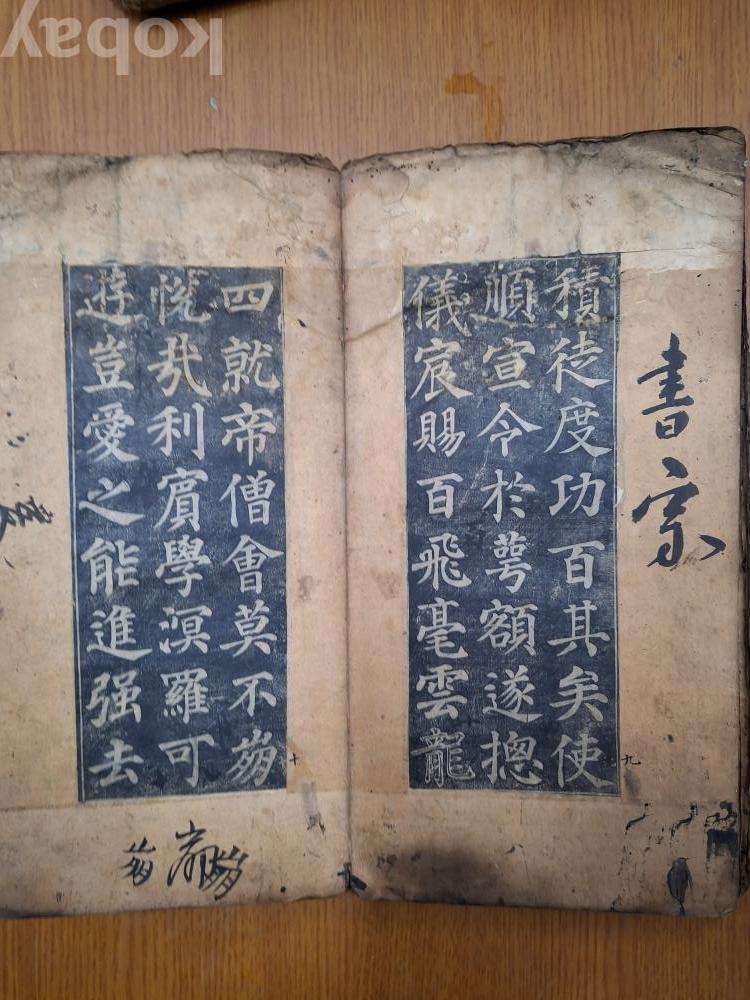 kobay
書宗
積徒度功百其矣使
九
順宣令於萼額遂揔
儀宸賜百飛毫雲龍
四就帝僧會莫不
十
悦㢤利賓學溟羅可
遊豈愛之能進强去